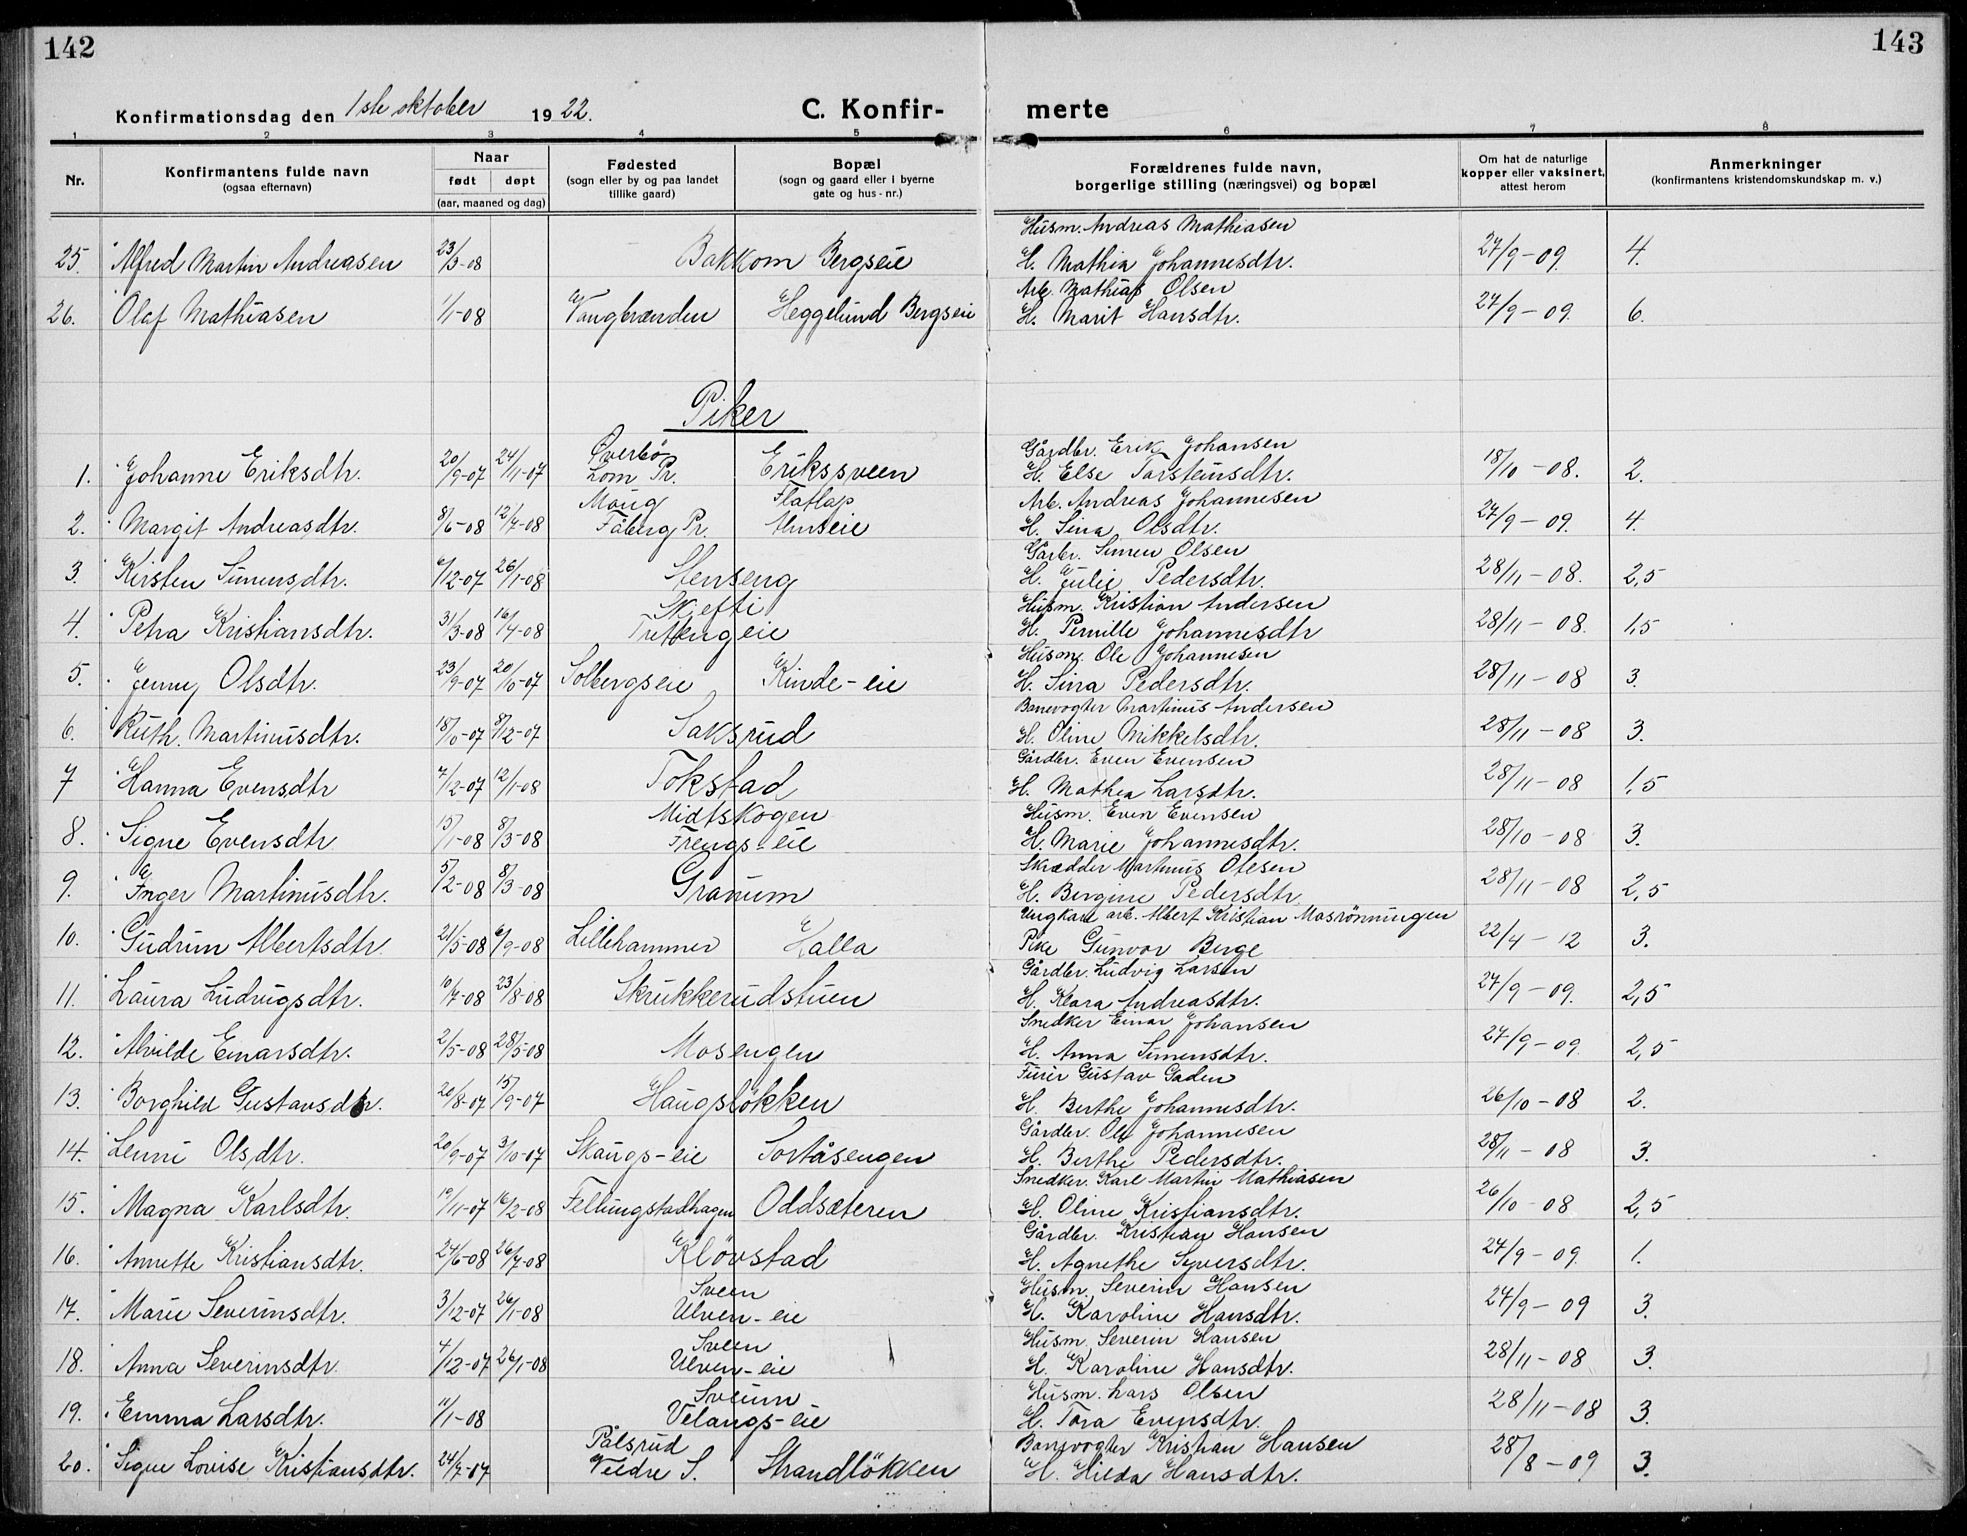 142
143
Konfirmationsdag den 1ste oktober 1922.
C. Konfir-
merte
1 2 3 4 5 6 7 8
Nr. | Konfirmantens fulde navn (ogsaa efternavn) | Naar født | døpt (aar, maaned og dag) | Fødested (sogn eller by og paa landet tillike gaard) | Bopæl (sogn og gaard eller i byerne gate og hus-nr.) | Forældrenes fulde navn, borgerlige stilling (næringsvei) og bopæl | Om hat de naturlige kopper eller vaksinert, attest herom | Anmerkninger (konfirmantens kristendomskundskap m. v.)
25. Alfred Martin Andreasen 23/3-08 Bakkom Bergseie Husm. Andreas Mathiasen H. Mathia Johannesdtr. 27/9-09. 4.
26. Olaf Mathiasen 1/1-08 Vangbrænden Heggelund Bergseie Arb. Mathias Olsen H. Marit Hansdtr. 27/9-09. 6.
Piker
1. Johanne Eriksdtr. 20/9-07 24/11-07 Øverbø Lom Pr. Erikssveen Gårdbr. Erik Johansen H. Else Torsteinsdtr. 18/10-08. 2.
2. Margit Andreasdtr. 8/6-08 12/7-08 Moug Fåberg Pr. Flatlap Årnseie Arb. Andreas Johannesen H. Sina Olsdtr. 27/9-09. 4.
3. Kirsten Simensdtr. 6/12-07 26/1-08 Stenseng Gårbr. Simen Olsen H. Julie Pedersdtr. 28/11-08. 2,5
4. Petra Kristiansdtr. 31/3-08 16/4-08 Skjefti Trettengeie Husm. Kristian Andersen H. Pernille Johannesdtr 28/11-08. 1,5
5. Jenny Olsdtr. 23/9-07 20/10-07 Solbergseie Kinde-eie Husm. Ole Johannesen H. Sina Pedersdtr. 28/11-08 3.
6. Ruth Martinusdtr. 18/10-07 8/12-07 Saksrud Banevogter Martinus Andersen H. Oline Mikkelsdtr. 28/11-08 3.
7 Hanna Evensdtr 7/12-07 12/1-08 Tokstad Gårdbr. Even Evensen H. Mathea Larsdtr. 28/11-08 1,5
8. Signe Evensdtr 15/1-08 8/3-08 Midtskogen Frengs-eie Husm. Even Evensen H. Marie Johannesdtr. 28/10-08 3.
9. Inger Martinusdtr. 5/2-08 8/3-08 Granum Skrædder Martinus Olesen H. Bergine Pedersdtr 28/11-08 2,5
10. Gudrun Albertsdtr. 21/5-08 6/9-08 Lillehammer Halla Ungkar arb. Albert Kristian Mosrönningen Pike Gunvor Berge 22/4-12 3.
11. Laura Ludvigsdtr. 10/7-08 23/8-08 Skrukkerudstuen Gårdbr. Ludvig Larsen H. Klara Andreasdtr. 27/9-09. 2,5
12. Alvilde Einarsdtr. 2/5-08 28/5-08 Mosengen Snedker Einar Johansen H. Anna Simensdtr. 27/9-09. 2,5
13. Borghild Gustavsdtr. 20/8-07 15/9-07 Haugslökken Furir Gustav Gaden H. Berthe Johannesdtr. 26/10-08 2.
14. Lenni Olsdtr. 20/9-07 3/10-07 Skaugs-eie Sortåsengen Gårdbr. Ole Johannesen H. Berthe Pedersdtr. 28/11-08 3.
15. Magna Karlsdtr. 10/11-07 16/2-08 Fellungstadhagen Oddsæteren Snedker. Karl Martin Mathiasen H. Oline Kristiansdtr. 26/10-08 2,5
16. Annette Kristiansdtr. 24/6-08 26/7-08 Klövstad Gårdbr. Kristian Hansen H. Agnethe Syversdtr. 27/9-09. 1.
17. Marie Severinsdtr. 3/12-07 26/1-08 Sveen Ulven-eie Husm. Severin Hansen H. Karoline Hansdtr. 27/9-09 3.
18. Anna Severinsdtr. 4/12-07 26/1-08 Sveen Ulven-eie Husm. Severin Hansen H. Karoline Hansdtr. 28/11-08 3.
19. Emma Larsdtr. 11/1-08 Sveum Velangs-eie Husm. Lars Olsen H. Tora Evensdtr. 28/11-08 3.
20. Signe Lovise Kristiansdtr. 24/7-07 Pålsrud Veldre S. Strandlökken Banevogter Kristian Hansen H. Hilda Hansdtr. 28/8-09 3.